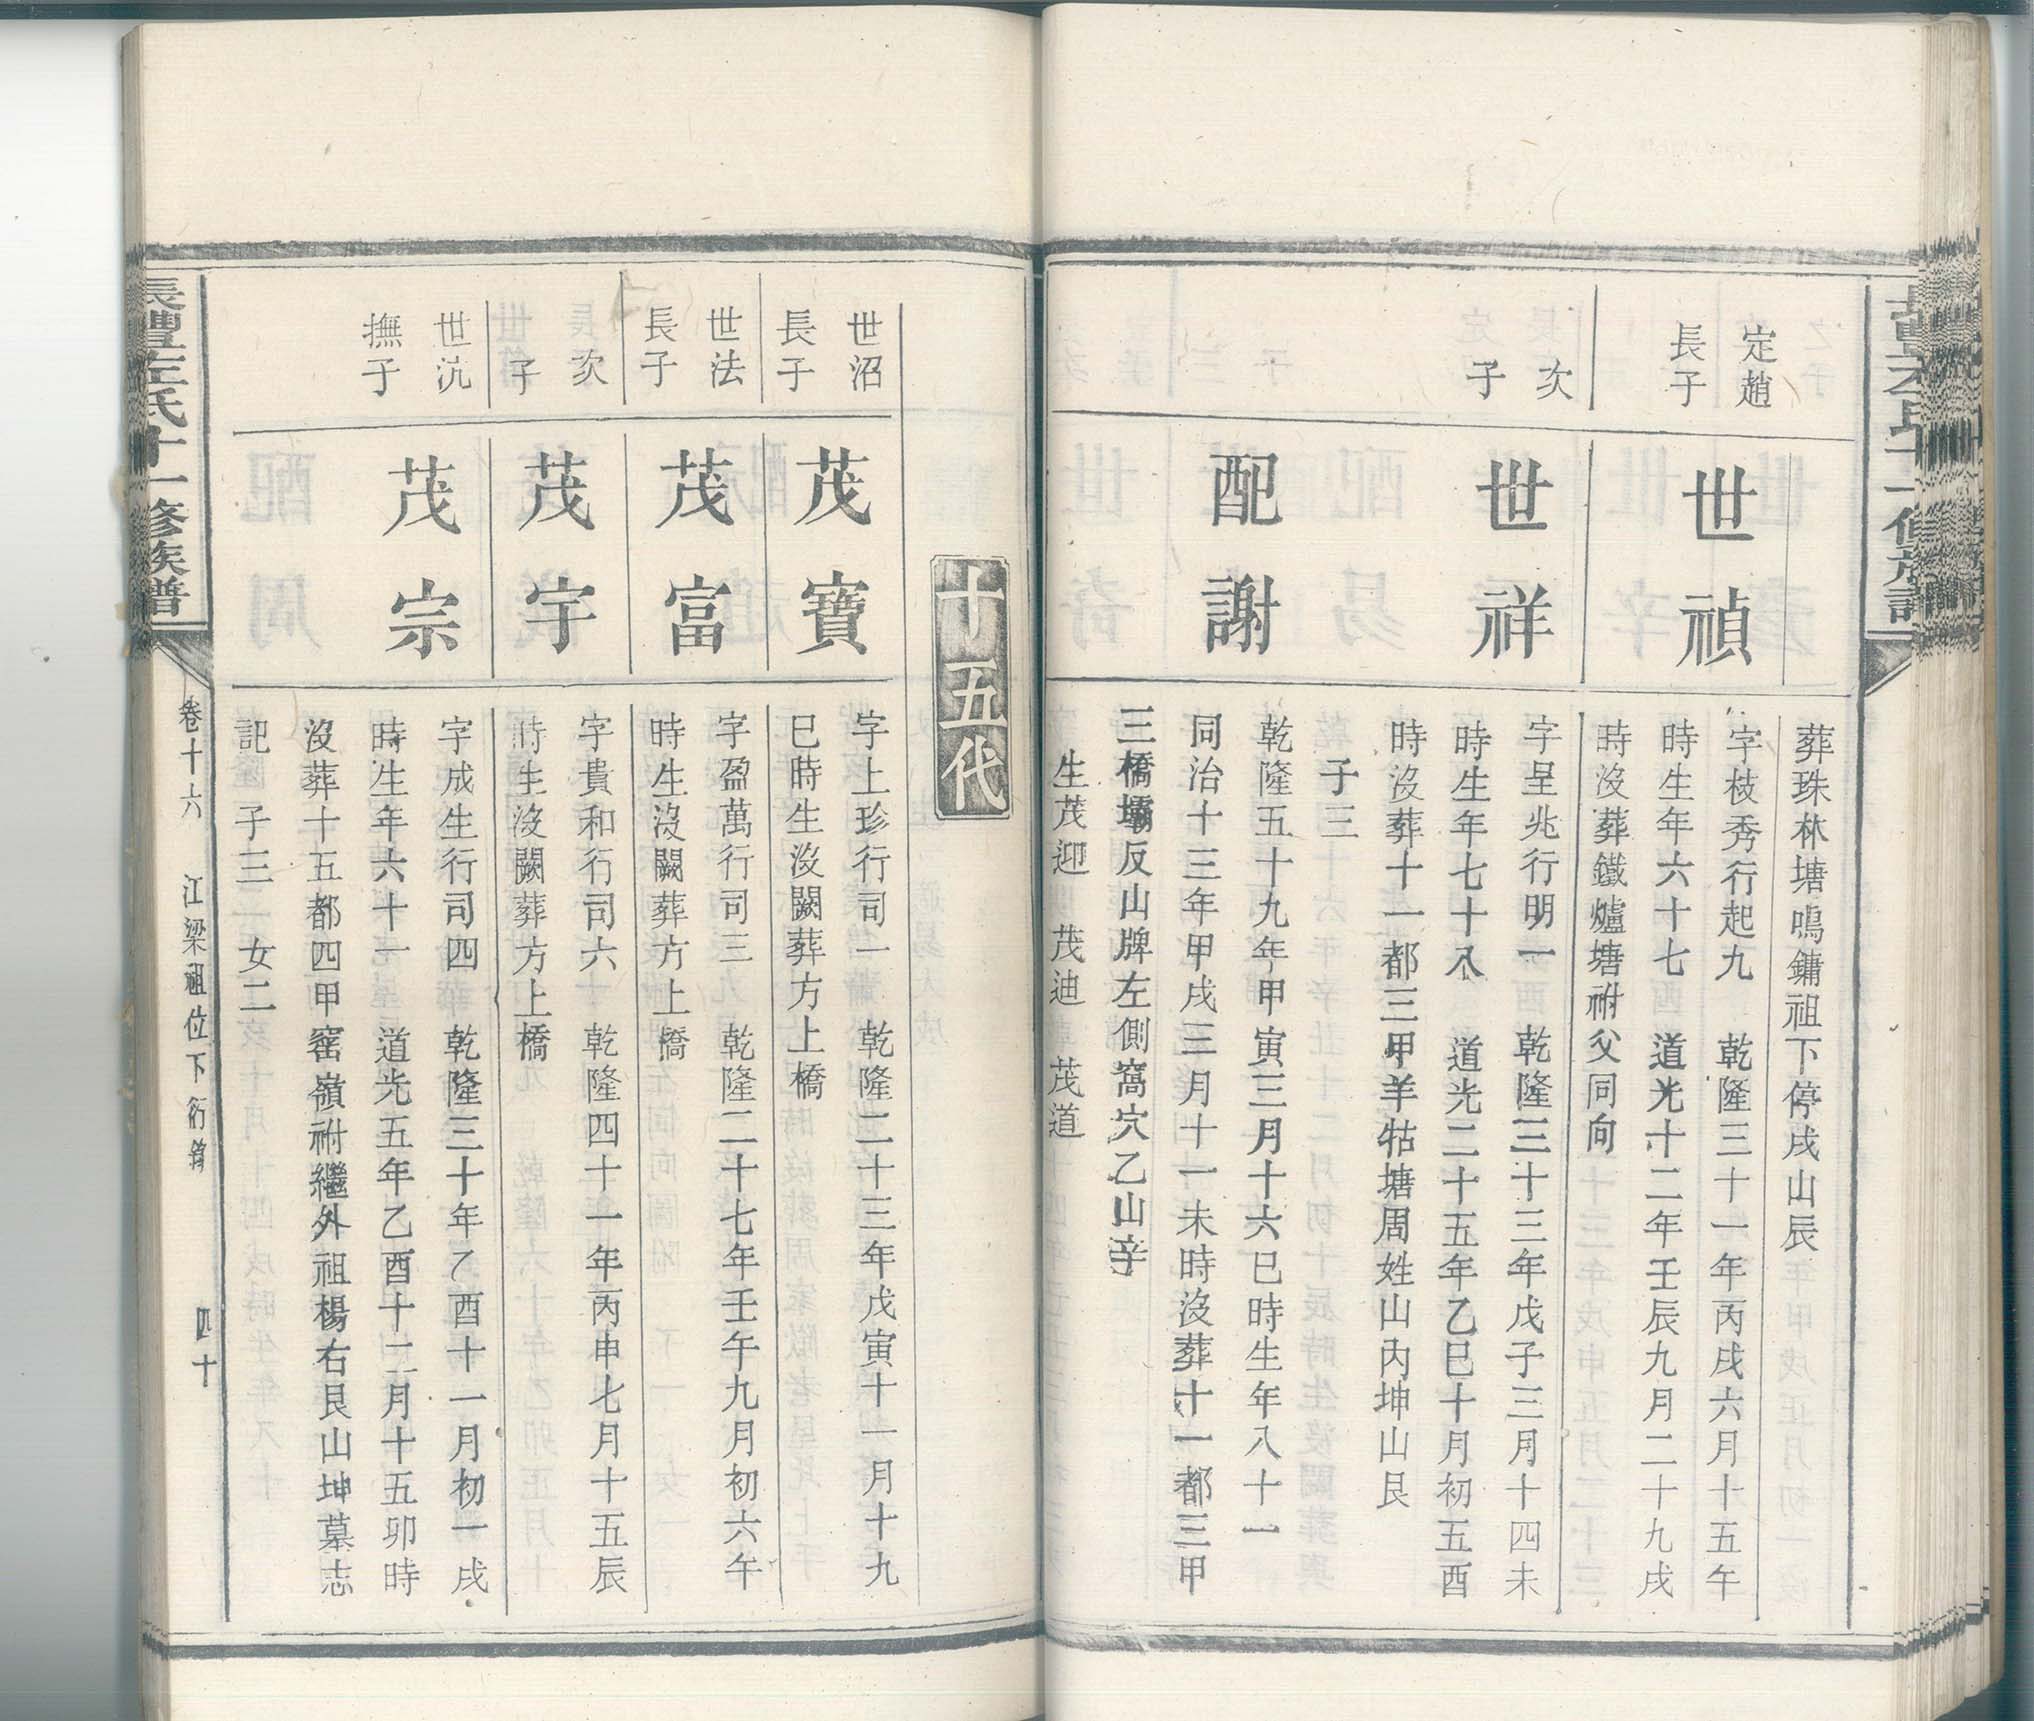 葬珠林塘鳴鏞祖下停戌山辰
定趙
長子
世禎
字枝秀行起九　乾隆三十一年丙戌六月十五午
時生年六十七　道光十二年壬辰九月二十九戌
時沒葬鐵爐塘祔父同向
次
子
世祥
字呈兆行明一　乾隆三十三年戊子三月十四未
時生年七十八　道光二十五年乙巳十月初五酉
時沒葬十一都三甲羊牯塘周姓山內坤山艮
子三
配謝
乾隆五十九年甲寅三月十六巳時生年八十一
同治十三年甲戌三月十一未時沒葬十一都三甲
三橋壩反山牌左側窩穴乙山辛
生茂迎　茂迪　茂道
十五代
世沼
長子
茂寶
字上珍行司一　乾隆二十三年戊寅十一月十九
巳時生沒闕葬方上橋
世法
長子
茂富
字盈萬行司三　乾隆二十七年壬午九月初六午
時生沒闕葬方上橋
次
子
茂宇
字貴和行司六　乾隆四十一年丙申七月十五辰
時生沒闕葬方上橋
世沇
撫子
茂宗
字成生行司四　乾隆三十年乙酉十一月初一戌
時生年六十一　道光五年乙酉十二月十五卯時
沒葬十五都四甲窰嶺祔繼外祖楊右艮山坤墓志
記　子三　女二
長豐左氏十一修族譜
卷十六　江梁祖位下衍前　四十